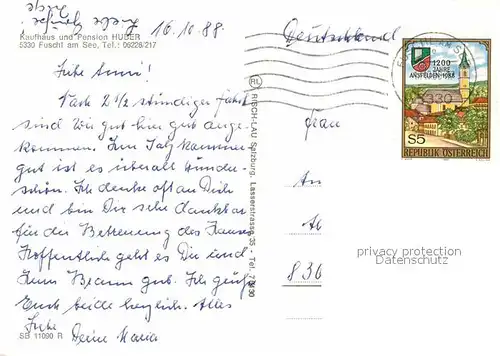 16.10.88.
Kaufhaus und Pension HUBER
5330 Fuschl am See, Tel.: 06226/217
Liebe Emmi!
Nach 2 1/2 stündiger Fahrt
sind wir gut hier gut ange-
kommen. Im Salzkammer-
gut ist es überall wunder-
schön. Ich denke oft an Dich
und bin Dir sehr dankbar
für der Betreuung des Hauses
Hoffentlich geht es Dir und
Herrn Braun gut. Ich grüße
Euch beide herzlich. Alles
Liebe
Deine Maria
SB 11090 R
RL
RISCH-LAU Salzburg, Lasserstrasse 35
Tel.
Deutschland
Frau
An
836
1200
JAHRE
ANSFELDEN 1988
S5
REPUBLIK ÖSTERREICH
privacy protection
Datenschutz